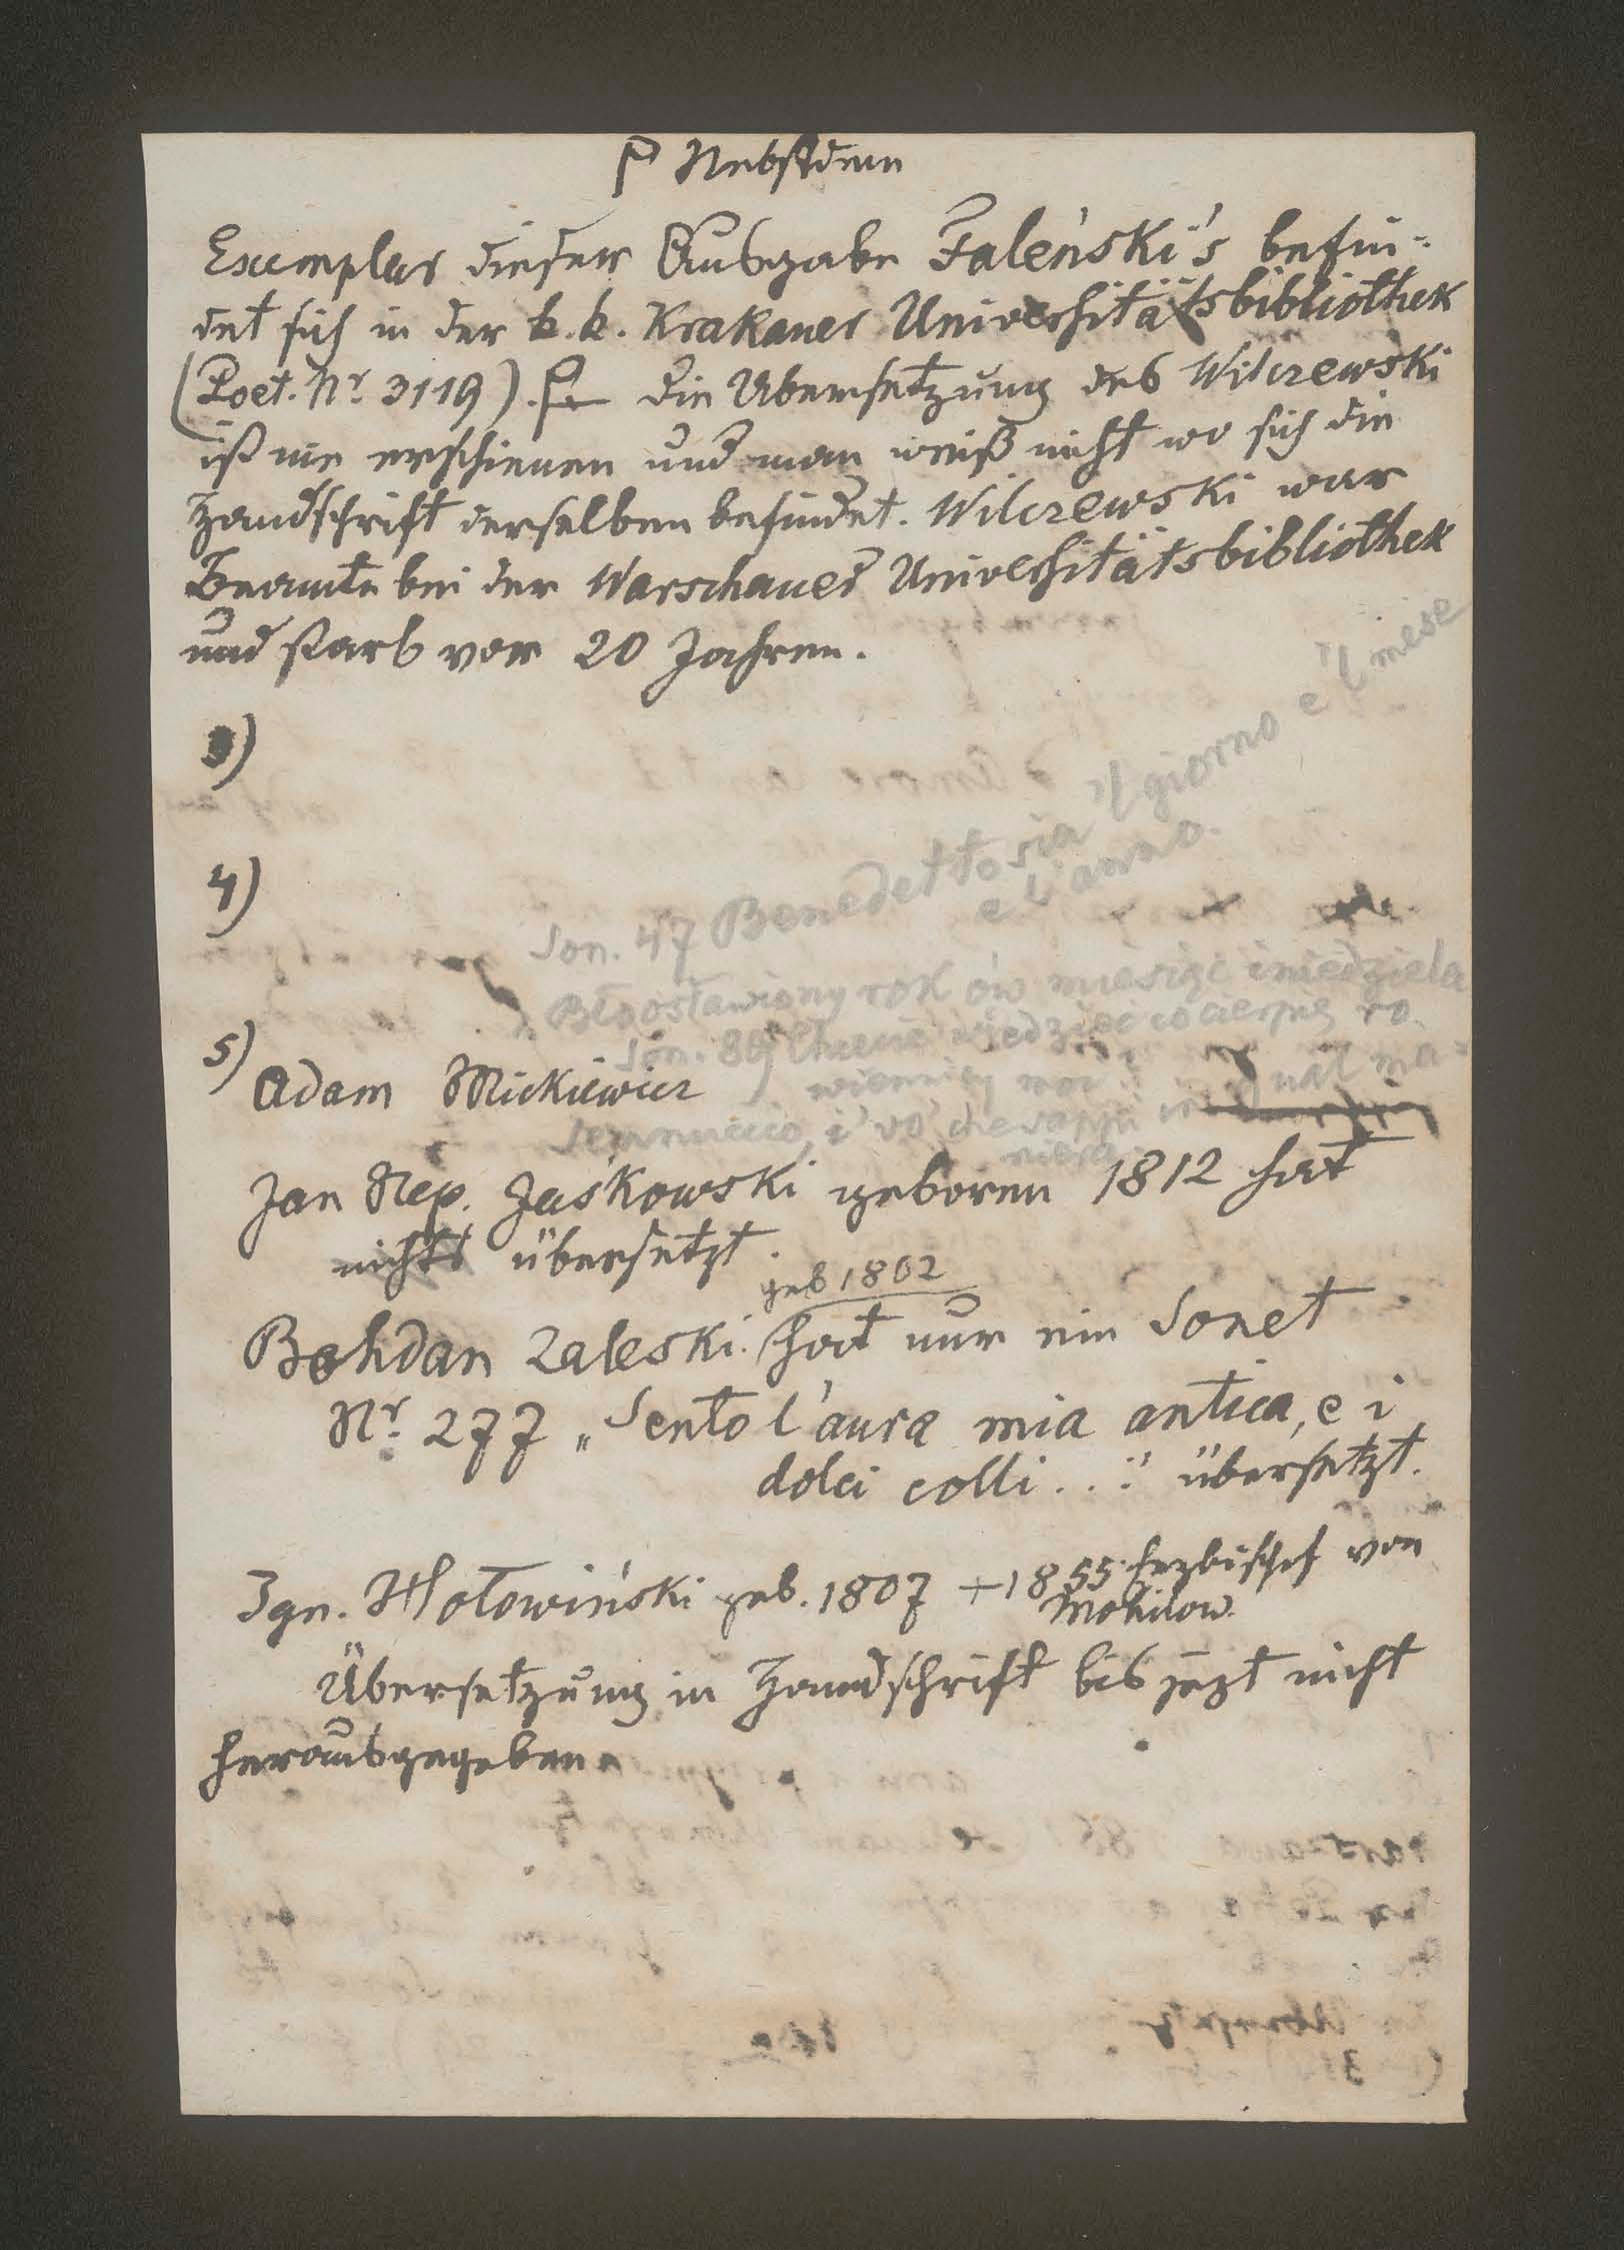 Nebstdem
Exemplar dieser Ausgabe Faleński's befin-
det sich in der k. k. Krakauer Universitätsbibliothek
(Poet. Nr. 3119). Die Übersetzung des Wilczewski
ist nie erschienen und man weiß nicht wo sich die
Handschrift derselben befindet. Wilczewski war
Beamte bei der Warschauer Universitätsbibliothek
und starb vor 20 Jahren.
3)
4)
Son. 47 Benedetto sia 'l giorno e 'l mese
e l'anno.
Błogosławiony rok ów miesiąc i niedziela
Son. 89 Chcecie wiedzieć co cierpię
5) Adam Mickiewicz
Sennuccio, i' vo' che sappi in qual ma-
niera
Jan Nep. Jaśkowski geboren 1812 hat
nichts übersetzt.
geb 1802
Bohdan Zaleski. hat nur ein Sonet
Nr. 277 „Sento l'aura mia antica, e i
dolci colli..." übersetzt.
Ign. Hołowiński geb. 1807 + 1855. Erzbischof von
Mohilow.
Übersetzung in Handschrift bis jezt nicht
herausgegeben